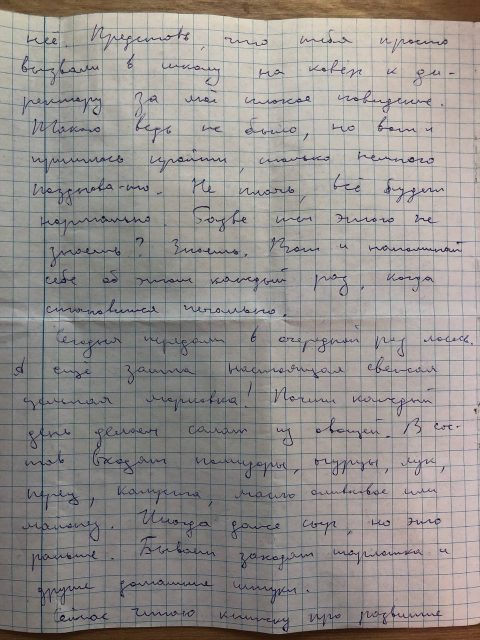 неё. Представь, что тебя просто
вызвали в школу на ковёр к ди-
ректору за моё плохое поведение.
Такого ведь не было, но вот и
пришлось пройти, только немного
поздновато. Не плачь, всё будет
нормально. Будве ты этого не
знаешь? Знаешь. Вот и напоминай
себе об этом каждый раз, когда
становится печально.
Сегодня передали в очередной раз лосось.
А ещё зашла настоящая свежая
цельная морковка! Почти каждый
день делаем салат из овощей. В сос-
тав входят помидоры, огурцы, лук,
перец, капуста, масло оливковое или
майонез. Иногда даже сыр, но это
раньше. Бывает заходят шарлотка и
другие домашние штуки.
Сейчас читаю книжку про развитие